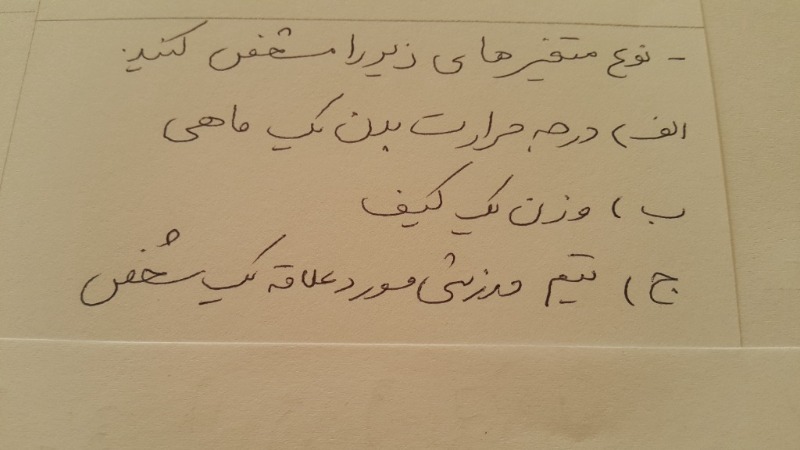 - نوع متغیرهای زیر را مشخص کنید:
الف) درجه حرارت بدن یک ماهی
ب) وزن یک کیف
ج) تیم ورزشی مورد علاقه یک شخص